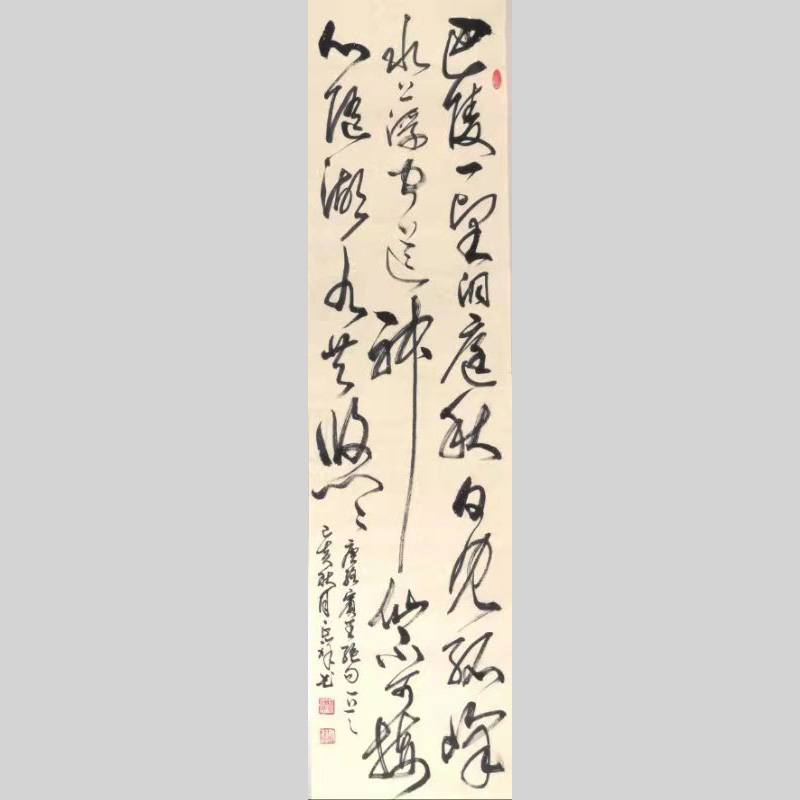 巴陵一望洞庭秋日見孤峰
水上浮聞道神仙不可接
心随湖水共悠々
唐駱賓王絕句一首
己亥秋月祥书